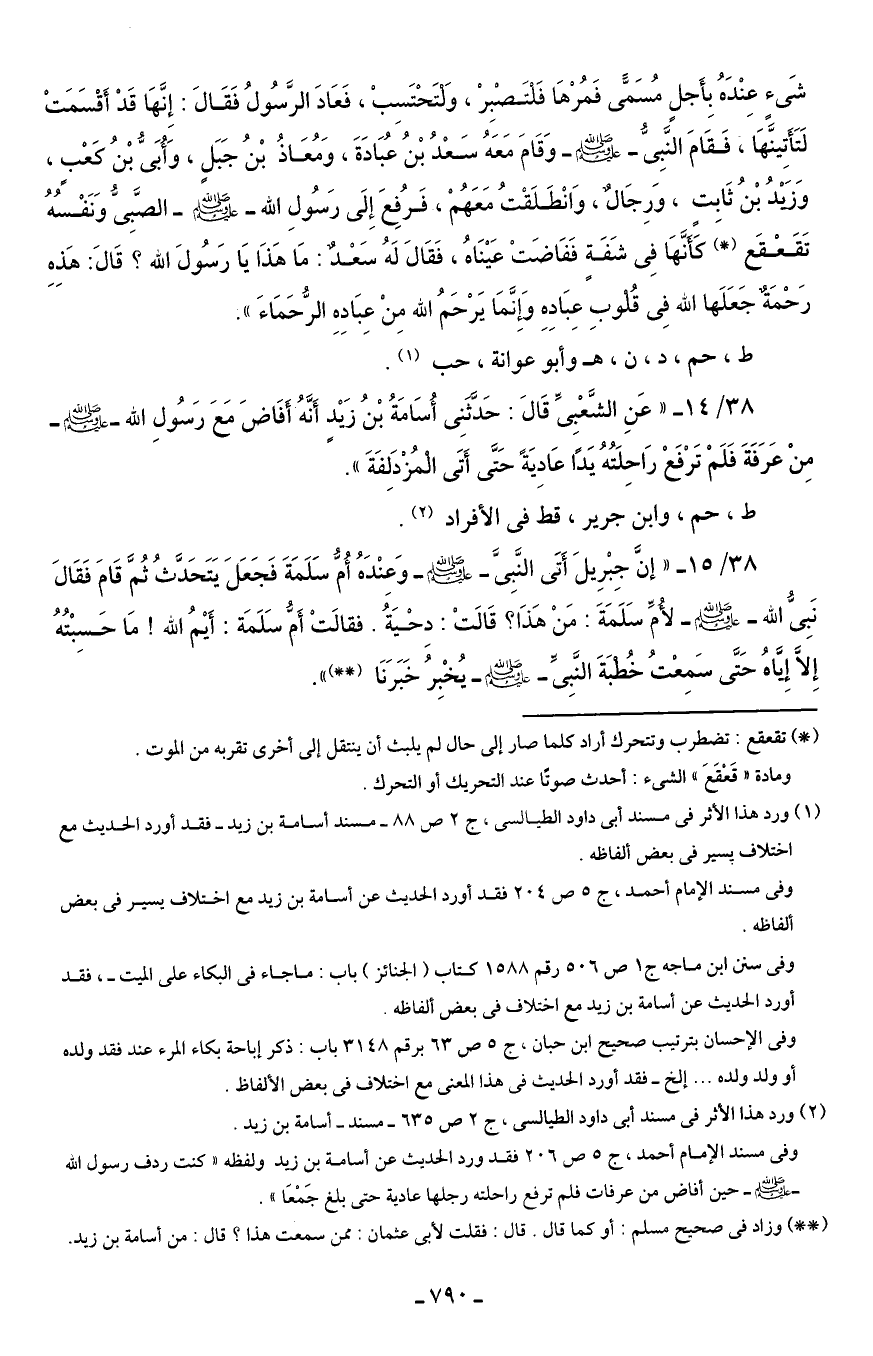 شَىءٍ عِنْدَهُ بِأَجلٍ مُسَمًّى فَمُرْهَا فَلْتَـصْبِرْ ، وَلْتَحْتَسِبْ ، فَعَادَ الرَّسُولُ فَقَالَ : إِنَّهَا قَدْ أَقْسَمَتْ
لَتَأتينَّهَا ، فَـقَامَ النَّبِىُّ - ﷺ - وَقَامَ مَعَهُ سَـعْدُ بْنُ عُبَادَةَ ، وَمُعَـاذُ بْنُ جَبَلٍ ، وَأُبَىُّ بْنُ كَعْبٍ ،
وَزَيْدُ بْنُ ثَابِتٍ ، وَرِجَالٌ ، وَانْطَـلَقْتُ مَعَهُمْ ، فَـرُفِعَ إِلَى رَسُولِ الله - ﷺ - الصَّبِىُّ وَنَفْسُهُ
تَقَـعْـقَع (*) كَأَنَّهَا فِى شَفَـةٍ فَفَاضَتْ عَيْنَاهُ ، فَقَالَ لَهُ سَعْـدٌ : مَا هَذَا يَا رَسُولَ الله ؟ قَالَ: هَذِهِ
رَحْمَةٌ جَعَلَها الله فِى قُلُوبِ عِبَادِهِ وَإِنَّمَا يَرْحَمُ الله مِنْ عِبَادِهِ الرُّحَمَاءَ » .
ط ، حم ، د ، ن ، هـ وأبو عوانة ، حب (١) .
٣٨/ ١٤- « عَنِ الشَّعْبِىِّ قَالَ : حَدَّثَنِى أُسَامَةُ بْنُ زَيْدٍ أَنَّهُ أَفَاضَ مَعَ رَسُولِ الله - ﷺ -
مِنْ عَرَفَةَ فَلَمْ تَرْفَعْ رَاحِلَتُهُ يَدًا عَادِيَةً حَتَّى أَتَى الْمُزْدَلِفَةَ » .
ط ، حم ، وابن جرير ، قط فى الأفراد (٢) .
٣٨/ ١٥- « إِنَّ جِبْرِيلَ أَتَى النَّبِىَّ - ﷺ - وَعِنْدَهُ أُمُّ سَلَمَةَ فَجَعَلَ يَتَحَدَّثُ ثُمَّ قَامَ فَقَالَ
نَبِىُّ الله - ﷺ - لأُمِّ سَلَمَةَ : مَنْ هَذَا؟ قَالَتْ : دِحْـيَةُ . فقالَتْ أُمُّ سَلَمَة : أَيْمُ الله ! مَا حَـسِبْتُهُ
إِلاَّ إِيَّاهُ حَتَّى سَمِعْتُ خُطْبَةَ النَّبِىِّ - ﷺ - يُخْبِرُ خَبَرَنَا (**) » .
(*) تقعقع : تضطرب وتتحرك أراد كلما صار إلى حال لم يلبث أن ينتقل إلى أخرى تقربه من الموت .
ومادة « قَعْقَعَ » الشىء : أحدث صوتًا عند التحريك أو التحرك .
(١) ورد هذا الأثر فى مسند أبى داود الطيالسى ، ج ٢ ص ٨٨ - مسند أسامة بن زيد - فقد أورد الحديث مع
اختلاف يسير فى بعض ألفاظه .
وفى مسند الإمام أحمد ، ج ٥ ص ٢٠٤ فقد أورد الحديث عن أسامة بن زيد مع اختلاف يسير فى بعض
ألفاظه .
وفى سنن ابن ماجه ج١ ص ٥٠٦ رقم ١٥٨٨ كتاب ( الجنائز ) باب : ماجاء فى البكاء على الميت - ، فقد
أورد الحديث عن أسامة بن زيد مع اختلاف فى بعض ألفاظه .
وفى الإحسان بترتيب صحيح ابن حبان ، ج ٥ ص ٦٣ برقم ٣١٤٨ باب : ذكر إباحة بكاء المرء عند فقد ولده
أو ولد ولده ... إلخ - فقد أورد الحديث فى هذا المعنى مع اختلاف فى بعض الألفاظ .
(٢) ورد هذا الأثر فى مسند أبى داود الطيالسى ، ج ٢ ص ٦٣٥ - مسند - أسامة بن زيد .
وفى مسند الإمام أحمد ، ج ٥ ص ٢٠٦ فقد ورد الحديث عن أسامة بن زيد ولفظه « كنت ردف رسول الله
- ﷺ - حين أفاض من عرفات فلم ترفع راحلته رجلها عادية حتى بلغ جَمْعًا » .
(**) وزاد فى صحيح مسلم : أو كما قال . قال : فقلت لأبى عثمان : ممن سمعت هذا ؟ قال : من أسامة بن زيد.
- ٧٩٠ -